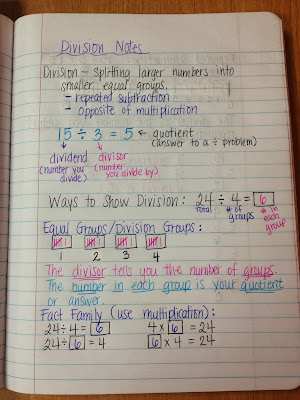 Division Notes
Division - Splitting larger numbers into
smaller equal groups.
- repeated subtraction
- opposite of multiplication
15 ÷ 3 = 5 ← quotient
(answer to a ÷ problem)
dividend divisor
(number you divide) (number you divide by)
Ways to Show Division: 24 ÷ 4 = 6
total # of groups # in each group
Equal Groups/Division Groups:
1 2 3 4
The divisor tells you the number of groups.
The number in each group is your quotient
or answer.
Fact Family (use multiplication):
24 ÷ 4 = 6 4 × 6 = 24
24 ÷ 6 = 4 6 × 4 = 24